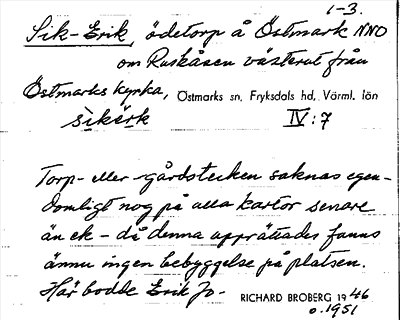 1-3.
Sik-Erik, ödetorp å Östmark NNO
om Ruskåsen västerut från
Östmarks kyrka, Östmarks sn, Fryksdals hd, Värml. län
sìkèrk IV:7
Torp- eller gårdstecken saknas egen-
domligt nog på alla kartor senare
än ek - då denna upprättades fanns
ännu ingen bebyggelse på platsen.
Här bodde Erik Jo-
RICHARD BROBERG 1946
o. 1951